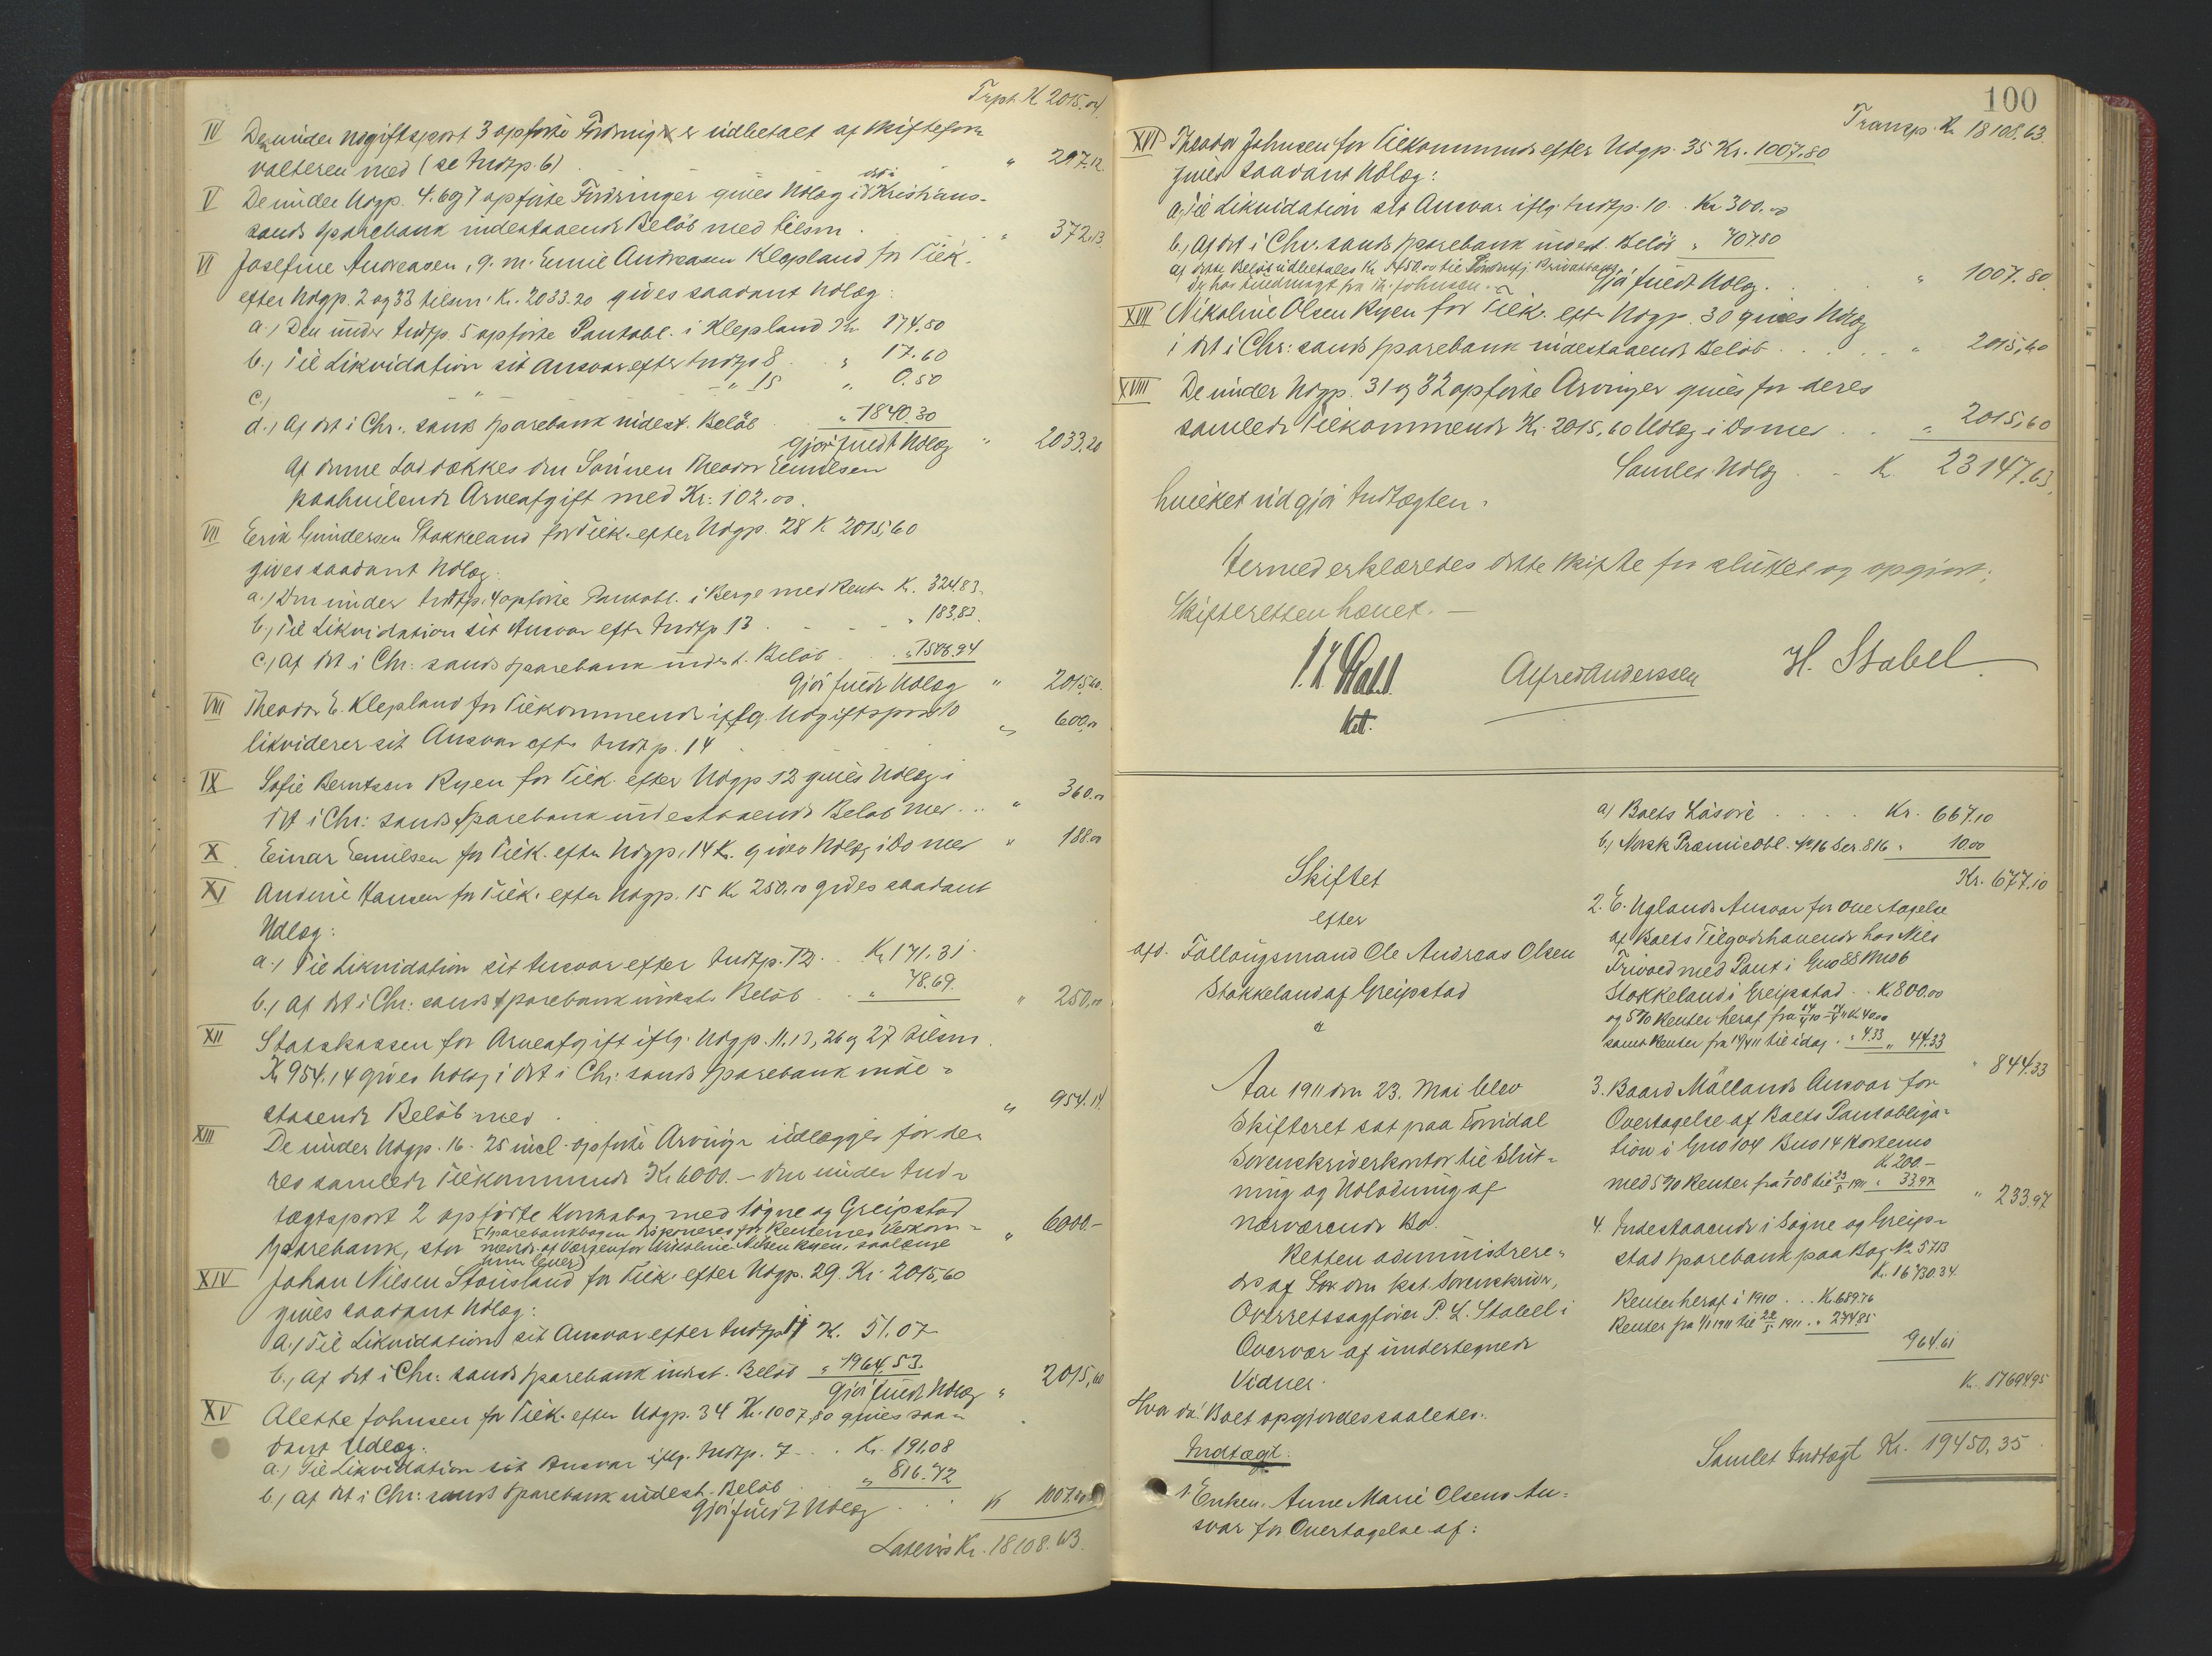 Trpt. K 2015.04.
IV De under Udgiftspost 3 opførte Fordring er udbetalt af Skiftefor-
valteren med (se Indtp. 6) " 297.12
V De under Udgp. 4. 6 og 7 opførte Fordringer gives Udlæg i det i Kristians-
sands Sparebank indestaaende Beløb med tilsm. " 372.13
VI Josefine Andreasen, g. m. Emil Andreasen Klepland for Tilk.
efter Udgp. 2 og 33 tilsm. Kr. 2033.20 gives saadant Udlæg:
a.) Den under Indtp. 5 opførte Pantobl. i Klepland Kr. 174.80
b.) Til Likvidation sit Ansvar efter Indtp 8 " 17.60
c.) " — " 15 " 0.50
d.) Af det i Chr. sands Sparebank indest. Beløb " 1840.30
Gjør fuldt Udlæg " 2033.20
Af denne Lod dækkes den Sønnen Theodor Emilsen
paahvilende Arveafgift med Kr. 102.00.
VII Erik Gundersen Stokkeland for Tilk. efter Udgp. 28 K 2015,60
gives saadant Udlæg:
a.) Den under Indtp. 4 opførte Pantobl. i Berge med Rente Kr. 324.83.
b.) Til Likvidation sit Ansvar eftr Indtp 13 " 183.83.
c.) Af det i Chr: sands Sparebank indest. Beløb " 1506.94
Gjør fuldt Udlæg " 2015,60.
VIII Theodor E. Klepland for Tilkommende iflg. Udgiftspost 10
likviderer sit Ansvar eftr Indtp. 14 " 600,00
IX Sofie Berntsen Ryen for Tilk. efter Udgp 12 gives Udlæg i
det i Chr: sands Sparebank indestaaende Beløb med " 360.00
X Einar Emilsen for Tilk. efter Udgp. 14 K. gives Udlæg i Do med " 188.00
XI Andine Hansen for Tilk. efter Udgp. 15 Kr 250.00 gives saadant
Udlæg:
a.) Til Likvidation sit Ansvar efter Indtp. 12 Kr 171.31.
b.) Af det i Chr: sands Sparebank indest. Beløb " 78.69. " 250,00
XII Statskassen for Arveafgift iflg. Udgp. 11, 13, 26 og 27 tilsm.
Kr 954.14 gives Udlæg i det i Chr: sands Sparebank inde-
staaende Beløb med " 954.14.
XIII De under Udgp. 16 - 25 incl. opførte Arvinger udlægges for de-
res samlede Tilkommende Kr 6000.- den under Ind-
tægtspost 2 opførte Kontrabog med Søgne og Greipstad
Sparebank, stor [Sparebankbogen disponeres for Renternes Vedkom- " 6000.-
mende af Værgen for Nikoline Nilsen Ryen, saalænge
hun lever]
XIV Johan Nilsen Stousland for Tilk. efter Udgp. 29. Kr. 2015,60
gives saadant Udlæg:
a.) Til Likvidation sit Ansvar efter Indtp 11 K. 51.07
b.) Af det i Chr. sands Sparebank indest. Beløb " 1964.53.
Gjør fuldt Udlæg " 2015,60
XV Alette Johnsen for Tilk. efter Udgp. 34 Kr. 1007,80 gives saa-
dant Udlæg:
a.) Til Likvidation sit Ansvar iflg. Indtp. 7 Kr. 191.08
b.) Af det i Chr: sands Sparebank indest. Beløb " 816.72
Gjør fuldt Udlæg K 1007.80
Lateris Kr. 18108.63.
100
Transp. Kr 18108.63.
XVI Theodor Johnsen for Tilkommende efter Udgp. 35 Kr. 1007.80
gives saadant Udlæg:
a.) Til Likvidation sit Ansvar iflg. Indtp. 10. Kr 300.00
b.) Af det i Chr. sands Sparebank indest. Beløb " 707.80
Af dette Beløb udbetales Kr til
fra Johnsen.
Gjør fuldt Udlæg. " 1007.80
XVII Nikoline Olsen Ryen for Tilk. eftr Udgp. 30 gives Udlæg
i det i Chr: sands Sparebank indestaaende Beløb " 2015,60
XVIII De under Udgp. 31 og 32 opførte Arvinger gives for deres
samlede Tilkommende Kr. 2015,60 Udlæg i Do med " 2015,60
Samlet Udlæg K. 23147.63,
hvilket udgjør Indtægten.
Hermed erklæredes dette Skifte for sluttet og opgjort;
Skifteretten hævet. —
Alfred Anderssen H. Stabel
kst.
Skiftet
efter
afd. Føllougsmand Ole Andreas Olsen
Stokkeland af Greipstad
Aar 1911 den 23. Mai blev
Skifteret sat paa Torridal
Sorenskriverkontor til Slut-
ning og Udlodning af
nærværende Bo.
Retten administrere-
des af den kst. Sorenskriver,
Overretssagfører P. L. Stabell i
Overvær af undertegnede
Vidner.
Hvor da: Boet opgjordes saaledes:
Indtægt:
1. Enken, Anne Marie Olsens An-
svar for Overtagelse af:
a) Boets Løsøre Kr. 667.10
b.) Norsk Præmieobl. No 16 Ser. 816 " 10.00
Kr. 677.10
2. E. Uglands Ansvar for Overtagelse
af Boets Tilgodehavende hos Nils
Trivoed med Pant i Gno 88 Bno 6
Stokkeland i Greipstad K 800.00
og 5% Renter heraf fra 14/4 10 - 14/4 11 K 40.00
samt Renter fra 14/4 11 til idag " 4.33 " 44.33
" 844.33
3. Baard Møllands Ansvar for
Overtagelse af Boets Pantobliga-
tion i Gno 104 Bno 14 Kostemo
K 200.-
med 5% Renter fra 1/1 08 til 23/5 1911 " 33.97
" 233.97
4. Indestaaende i Søgne og Greip-
stad Sparebank paa Bog No 5713
K. 16730.34.
Renter heraf i 1910 K. 689.76
Renter fra 1/1 1911 til 22/5 1911 " 274.85
964.61
K. 17694.95
Samlet Indtægt Kr. 19450.35